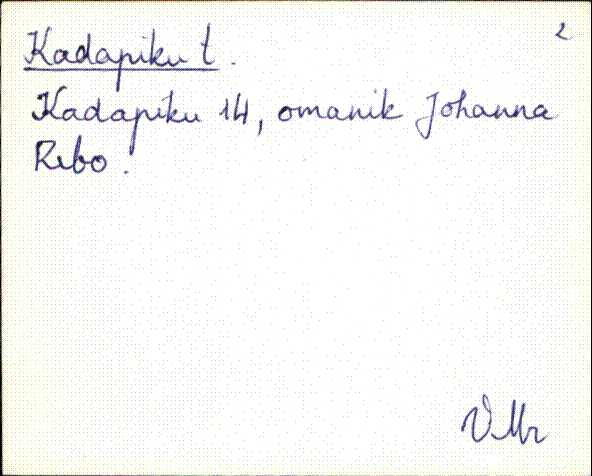 2
Kadapiku t.
Kadapiku 14, omanik Johanna
Rebo.
VMr